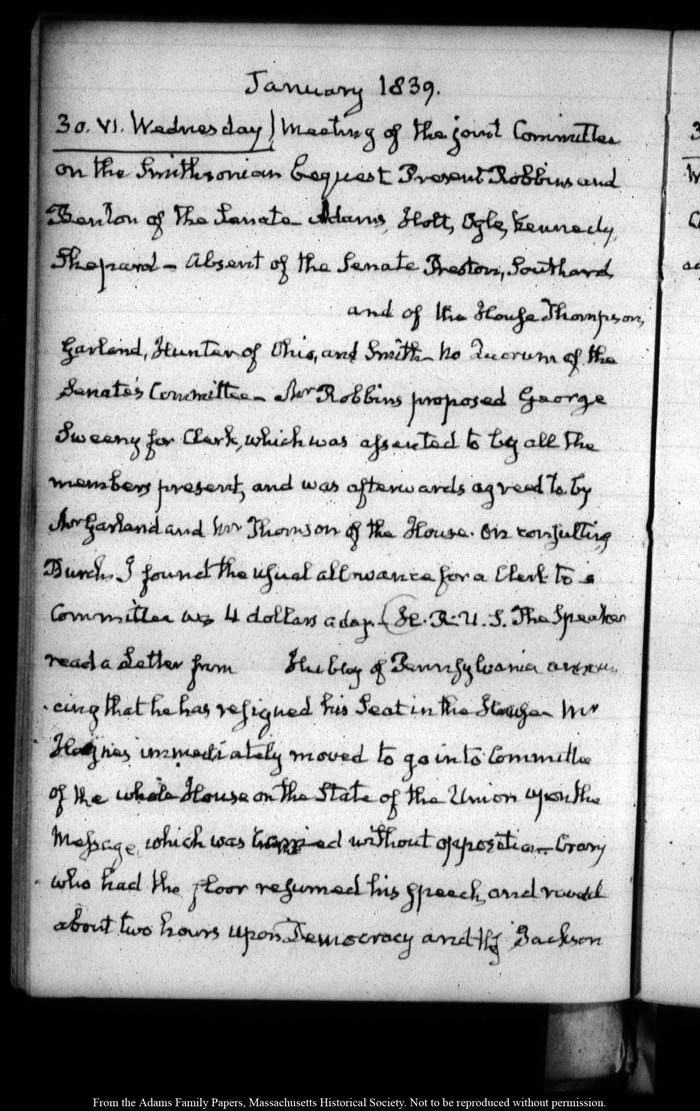 January 1839.
30. VI. Wednesday) Meeting of the joint Committee
on the Smithsonian bequest Present Robbins and
Benton of the Senate Adams, Holt, Ogle, Kennedy,
Shepard - Absent of the Senate Preston, Southard,
and of the House Thompson,
Garland, Hunter of Ohio, and Smith - No Quorum of the
Senate's Committee - Mr Robbins proposed George
Sweeny for Clerk, which was assented to by all the
members present, and was afterwards agreed to by
Mr Garland and Mr Thomson of the House. On consulting
Burch, I found the usual allowance for a Clerk to a
Committee was 4 dollars a day - H. R. U. S. The Speaker
read a Letter from Hubley of Pennsylvania announ
cing that he has resigned his Seat in the House - Mr
Haynes immediately moved to go into Committee
of the whole House on the State of the Union upon the
Message, which was carried without opposition - Crary
who had the floor resumed his speech, and raved
about two hours upon Democracy and Jackson
From the Adams Family Papers, Massachusetts Historical Society. Not to be reproduced without permission.